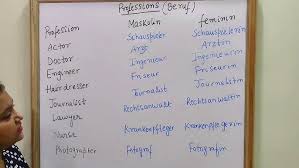 Professions (Beruf)
Profession Maskulin feminin
Actor Schauspieler Schauspielerin
Doctor Arzt Ärztin
Engineer Ingenieur Ingenieurin
Hairdresser Friseur Friseurin
Journalist Journalist Journalistin
Lawyer Rechtsanwalt Rechtsanwältin
Nurse Krankenpfleger Krankenpflegerin
Photographer Fotograf Fotografin